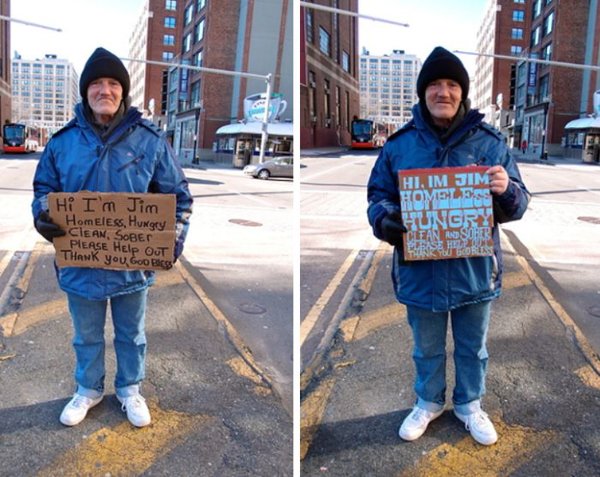 Hi I'm Jim
Homeless, Hungry
Clean, Sober
Please Help Out
Thank you, God Bless
HI, IM JIM
HOMELESS
HUNGRY
CLEAN AND SOBER
PLEASE HELP OUT
THANK YOU GOD BLESS